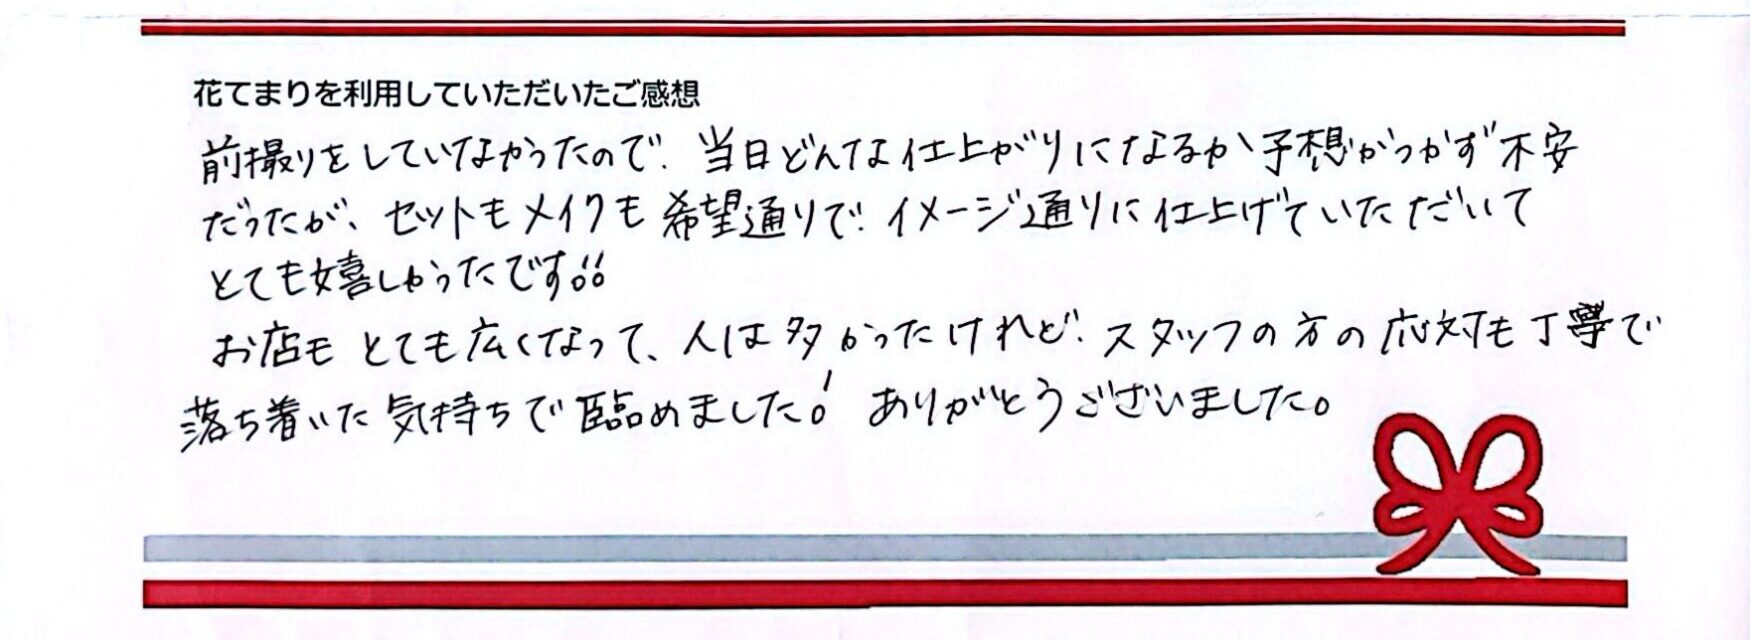 花てまりを利用していただいたご感想
前撮りをしていなかったので、当日どんな仕上がりになるか予想がつかず不安
だったが、セットもメイクも希望通りで、イメージ通りに仕上げていただいて
とても嬉しかったです!!
お店もとても広くなって、人は多かったけれど、スタッフの方の応対も丁寧で
落ち着いた気持ちで臨めました! ありがとうございました。